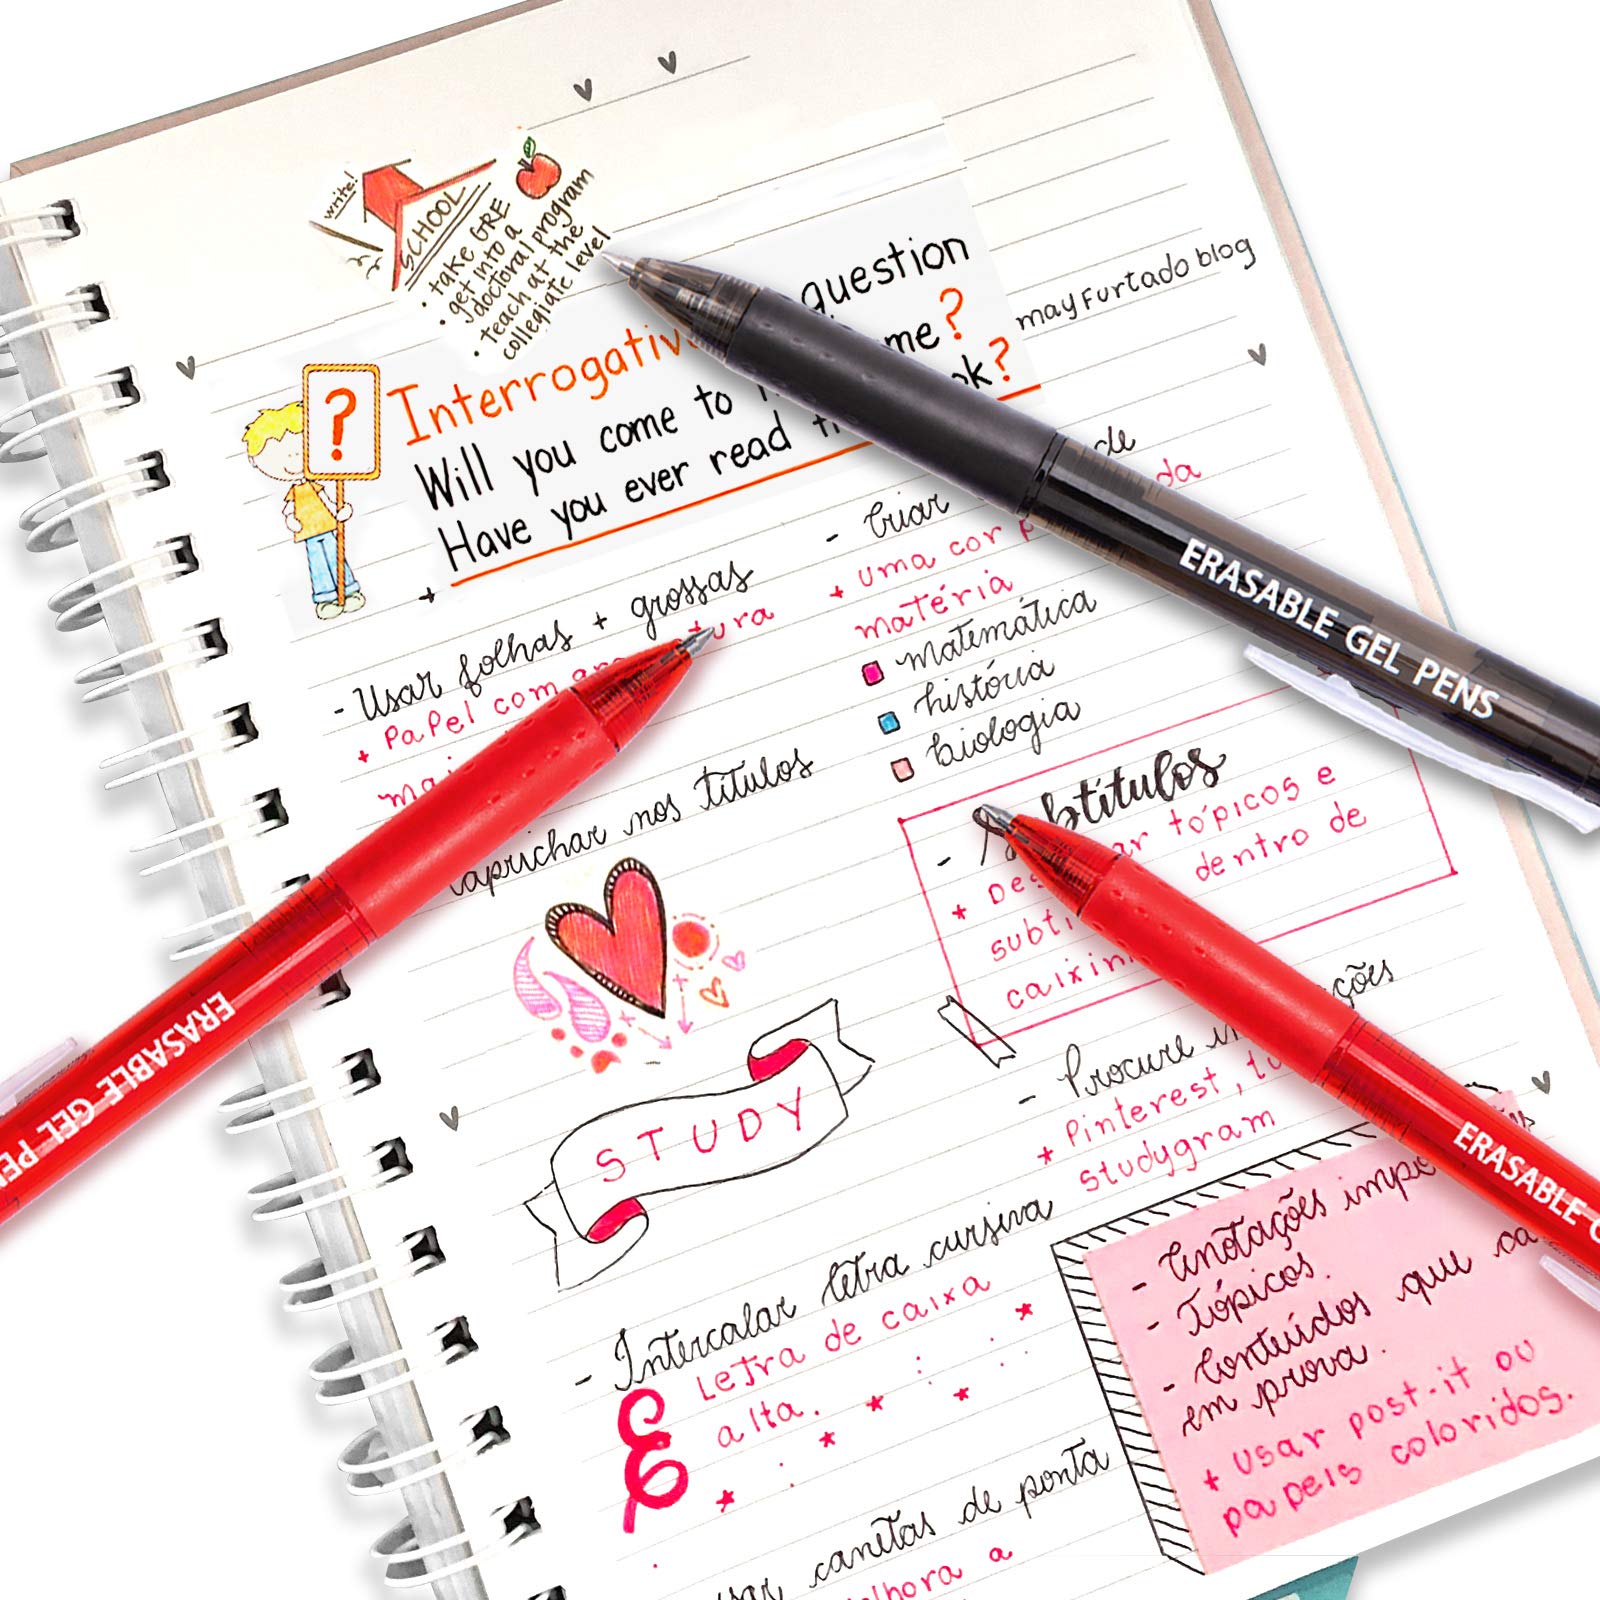 write!
SCHOOL
• take GRE
get into a
doctoral program
• teach at the
collegiate level
question
Interrogativ
me?
Will you come to
k?
Have you ever read
mayfurtado blog
- Usar folhas + grossas
+ Papel com
tura
- Criar
de
+ uma cor p
da
matéria
matemática
história
biologia
caprichar nos títulos
- Subtítulos
* Des
ar tópicos e
subtí
dentro de
caixin
STUDY
- Procure in
ções
* Pinterest, tu
studygram
- Intercalar letra cursiva
Letra de caixa
alta.
- Anotações impo
- Tópicos.
- Conteúdos que ca
em prova.
+ Usar post-it ou
papeis coloridos.
canetas de ponta
lhora a
ERASABLE GEL PENS
ERASABLE GEL PE
ERASABLE G